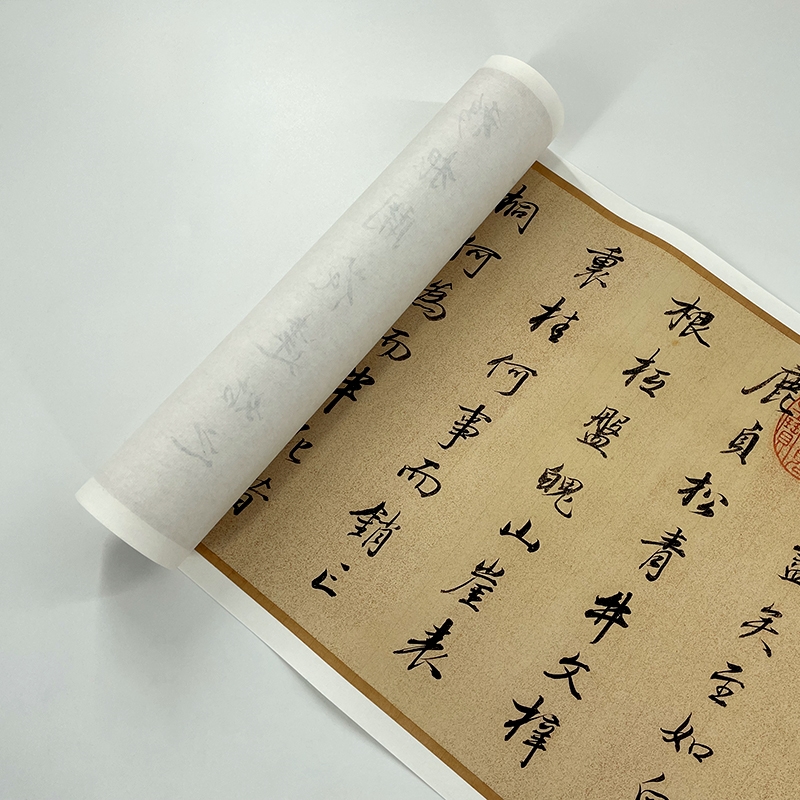 盡矣至如白
鹿貞松青牛文梓
根柢盤魄山崖表
裏桂何事而銷亡
桐何為而半死昔